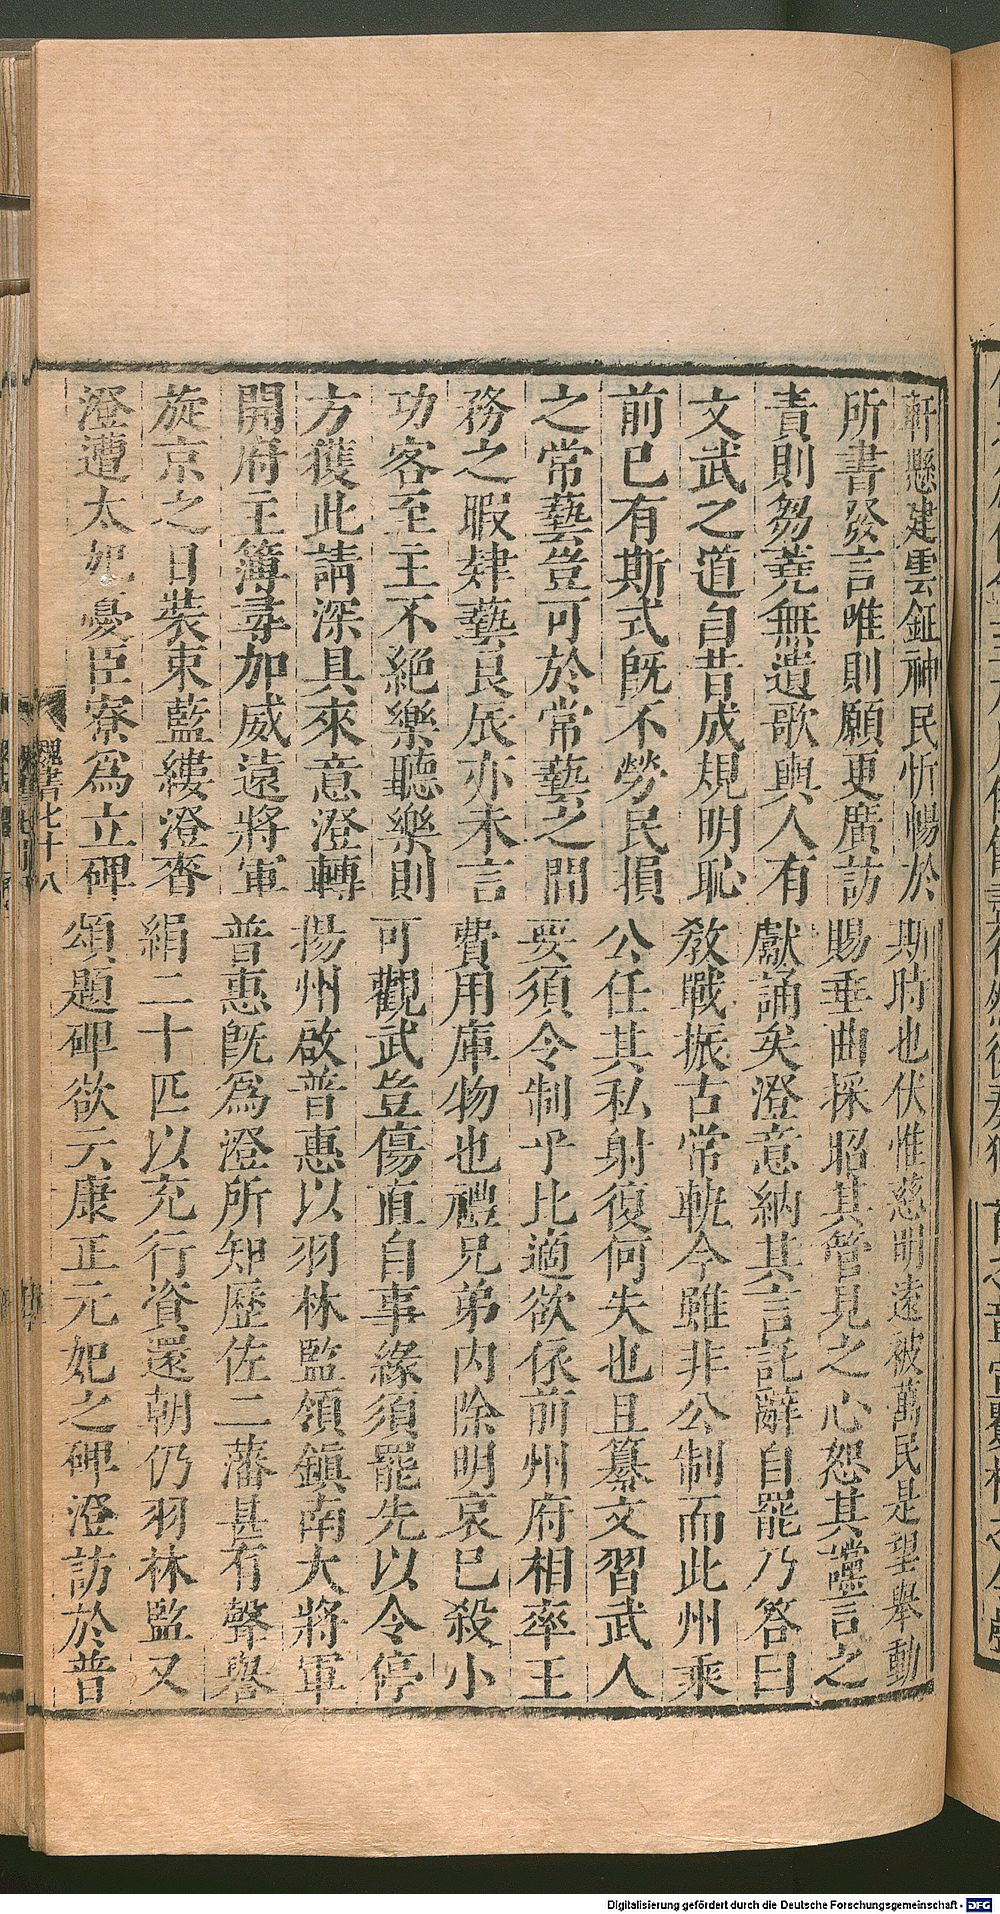 軒懸建雲鉦神民忻暢於斯時也伏惟慈明遠被萬民是望舉動
所書發言唯則願更廣訪賜垂曲採昭其管見之心恕其讜言之
責則芻蕘無遺歌輿人有獻誦矣澄意納其言託辭自罷乃答曰
文武之道自昔成規明恥敎戰振古常軌今雖非公制而此州乘
前已有斯式旣不勞民損公任其私射復何失也且纂文習武人
之常藝豈可於常藝之間要須令制乎比適欲依前州府相率王
務之暇肄藝良辰亦未言費用庫物也禮兄弟內除明哀已殺小
功客至主不絶樂聽樂則可觀武豈傷直自事緣須罷先以令停
方獲此請深具來意澄轉揚州啟普惠以羽林監領鎭南大將軍
開府主簿尋加威遠將軍普惠旣爲澄所知歷佐二藩甚有聲譽
旋京之日裝束藍縷澄賚絹二十匹以充行資還朝仍羽林監又
澄遭太妃憂臣寮爲立碑頌題碑欲云康正元妃之碑澄訪於普
魏書七十八
Digitalisierung gefördert durch die Deutsche Forschungsgemeinschaft - DFG